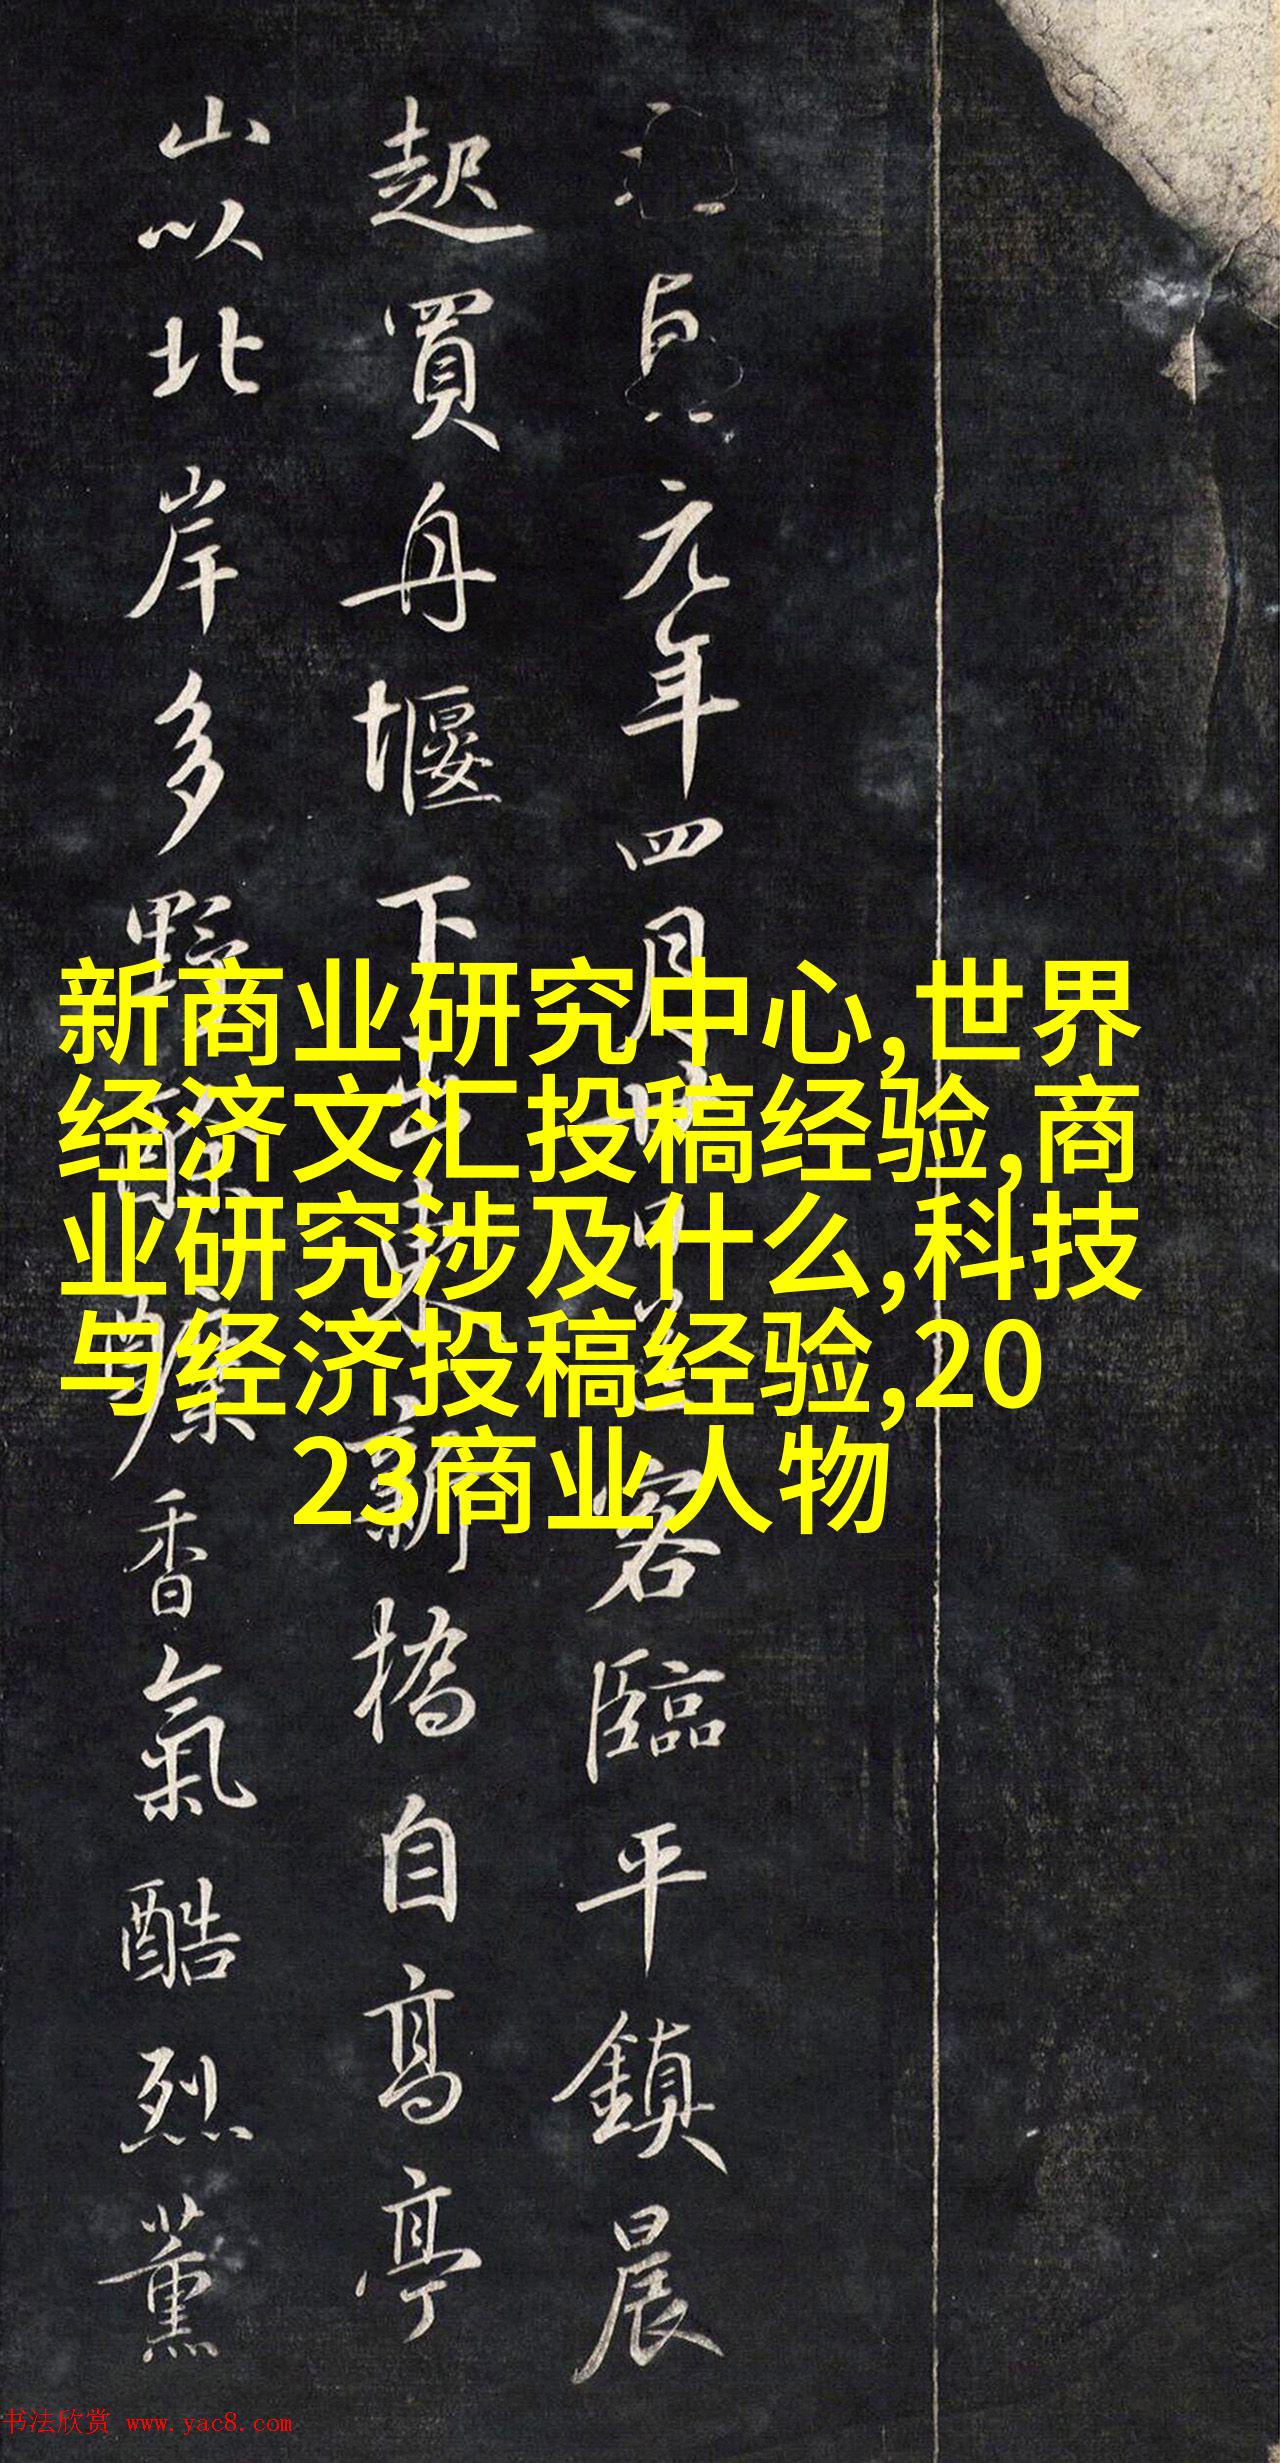 貞元年四月
客臨平鎮晨
起買舟堰下
東新橋自高亭
山以北岸多野
香氣酷烈薰
新商业研究中心,世界
经济文汇投稿经验,商
业研究涉及什么,科技
与经济投稿经验,20
23商业人物
书法欣赏 www.yac8.com